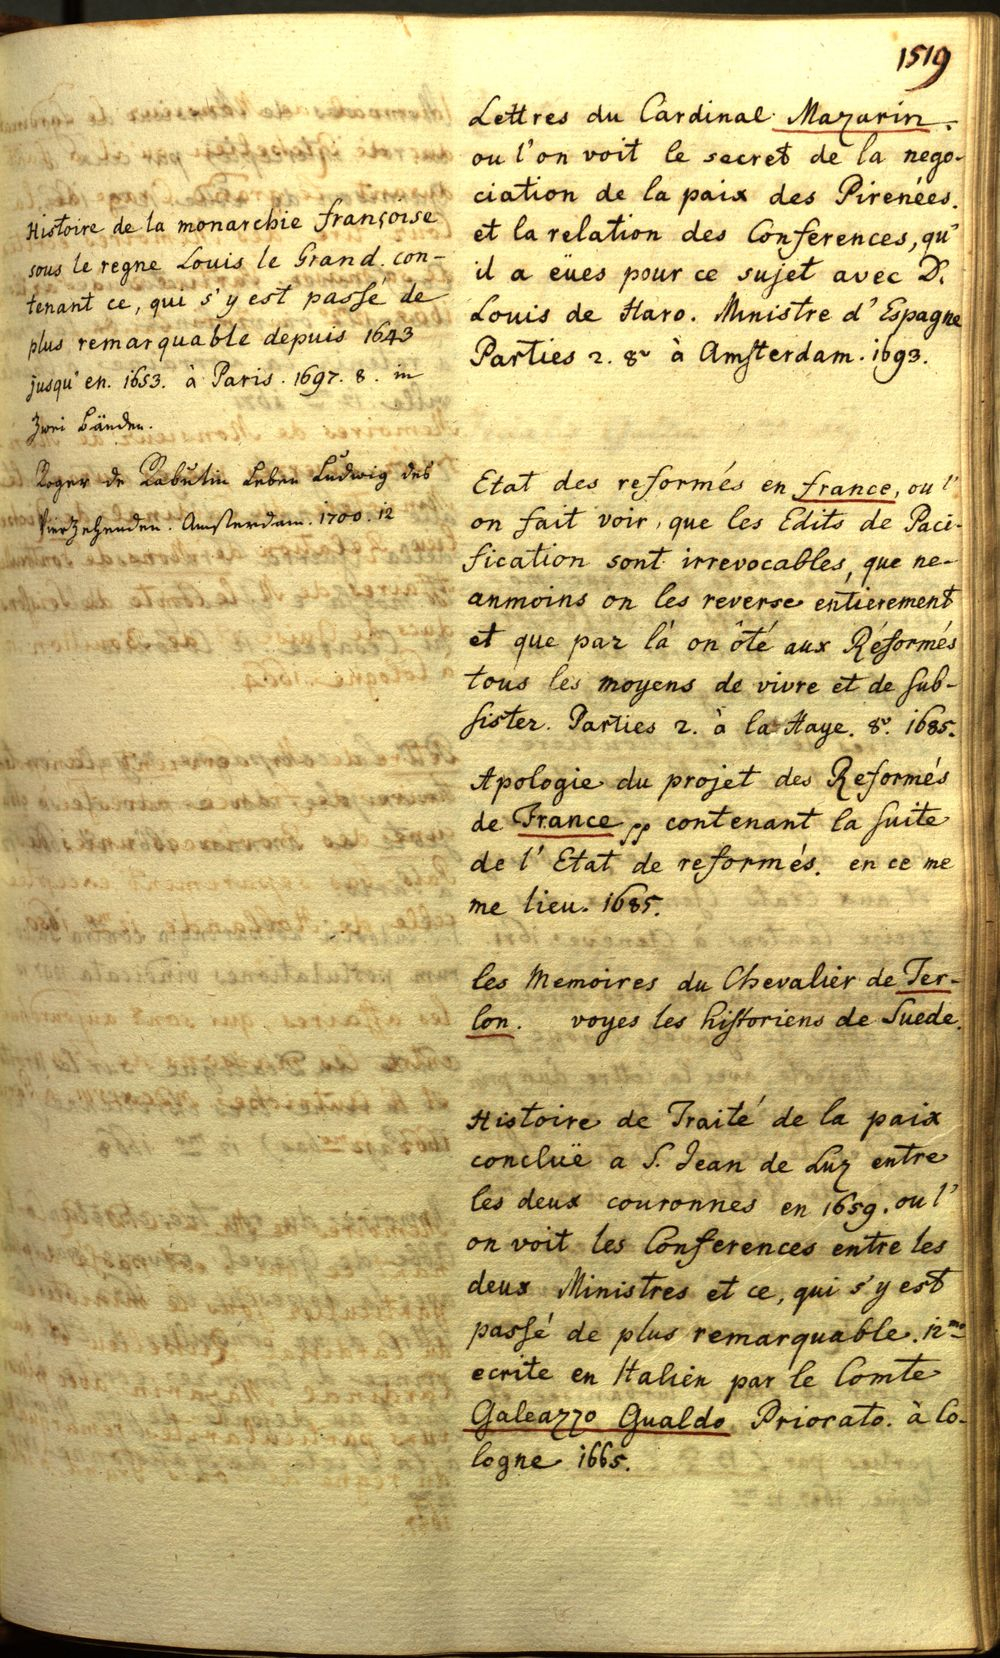 1519
Histoire de la monarchie françoise
sous le regne Louis le Grand. con-
tenant ce, qui s'y est passé de
plus remarquable depuis 1643
jusqu'en. 1653. à Paris. 1697. 8. in
zwei Bänden.
Roger de Rabutin Leben Ludwig des
Vierzehenden. Amsterdam. 1700. 12
Lettres du Cardinal Mazarin.
ou l'on voit le secret de la nego-
ciation de la paix des Pirenées.
et la relation des Conferences, qu'
il a eües pour ce sujet avec D.
Louis de Haro. Ministre d'Espagne
Parties 2. 8º à Amsterdam. 1693.
Etat des reformés en france, ou l'
on fait voir, que les Edits de Paci-
fication sont irrevocables, que ne-
anmoins on les reverse entierement
et que par là on ôté aux Réformés
tous les moyens de vivre et de sub-
sister. Parties 2. à la Haye. 8º. 1685.
Apologie du projet des Reformés
de France pp contenant la suite
de l'Etat de reformés. en ce me
me lieu. 1685.
les Memoires du Chevalier de Ter-
lon. voyes les historiens de Suede.
Histoire de Traité de la paix
concluë a S. Jean de Luz entre
les deux couronnes en 1659. ou l'
on voit les Conferences entre les
deux Ministres et ce, qui s'y est
passé de plus remarquable. 12mo
ecrite en Italien par le Comte
Galeazzo Gualdo Priorato. à Co-
logne 1665.